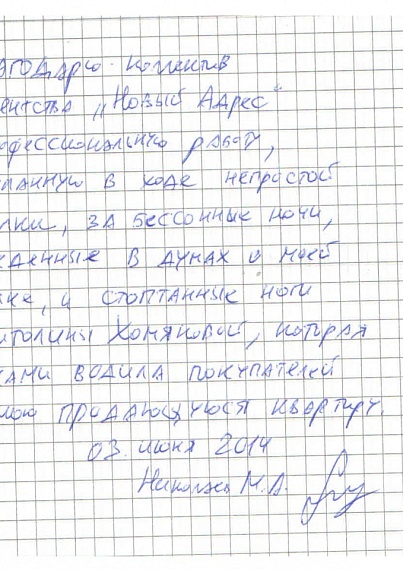 агодарю коллектив
ентства „Новый Адрес"
офессиональную работу,
ланную в ходе непростой
лки, за бессонные ночи,
еденные в думах о моей
лке, и стоптанные ноги
итолины Хомяковой, которая
сами водила покупателей
мою продающуюся квартиру.
03. июня 2014
М.А.